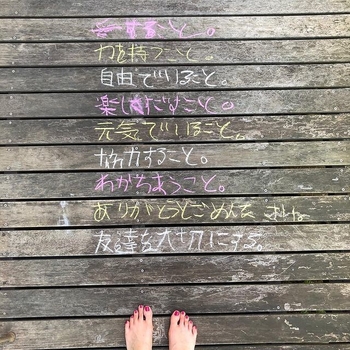 すること。
力を持つこと
自由でいること。
楽しみだすこと。
元気でいること。
協力すること。
わかちあうこと。
ありがとうとごめんな
友達を大切にする。